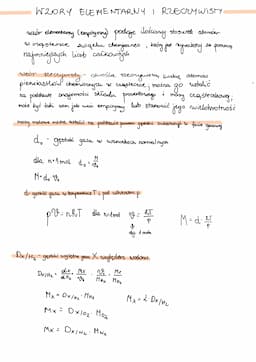 WZORY ELEMENTARNY I RZECZYWISTY
wzór elementarny (empiryczny) podaje jakościowy stosunek atomów
w cząsteczce związku chemicznego, który jest wyrażony za pomocą
najmniejszych liczb całkowitych
wzór rzeczywisty - określa rzeczywistą liczbę atomów
pierwiastków chemicznych w cząsteczce, można go ustalić
na podstawie znajomości składu procentowego i masy cząsteczkowej,
może być taki sam jak wzór empiryczny lub stanowić jego wielokrotność
d₀ - gęstość gazu w warunkach normalnych
dla n=1mol d₀ = M/V₀
M = d₀ · V₀
d - gęstość gazu w temperaturze T i pod ciśnieniem p
pV = nRT dla n=1mol V = RT/p
M = d · RT/p
Dx/H₂ - gęstość względna gazu X względem wodoru
Mx = Dx/H₂ · MH₂
Mx = 2 · Dx/H₂
Mx = Dx/O₂ · MO₂
Mx = Dx/N₂ · MN₂